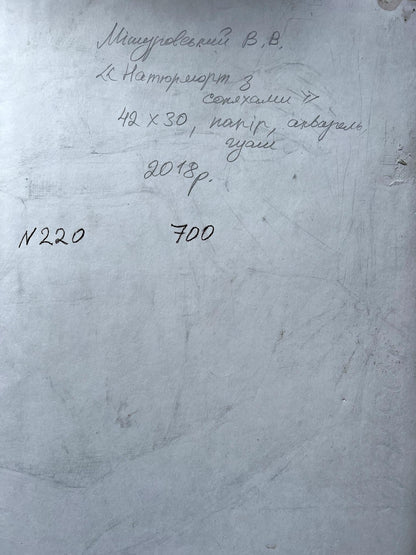 Мішуровський В.В.
«Натюрморт з
соняхами»
42 х 30, папір, акварель
гуаш
2018р.
N220 700